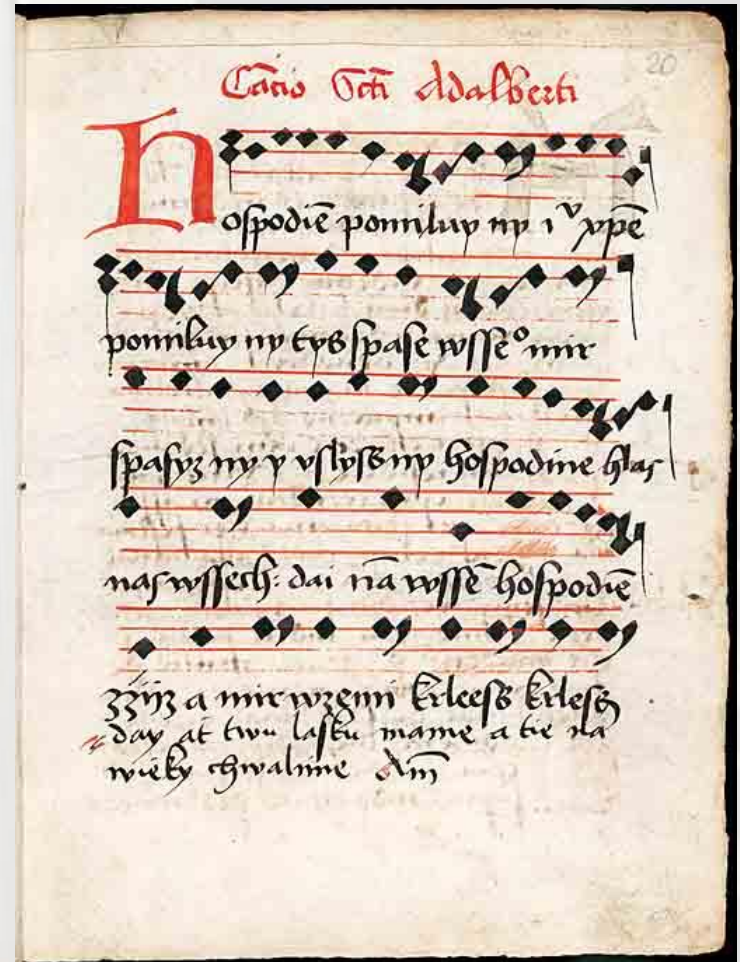 Cācio Scti Adalberti
20
Hospodiē pomiluy ny iᵛ xpē
pomiluy ny tys spase wsseᵒ mir
spasyz ny y vslyss ny hospodine hlas
nas wssech: dai nā wssē hospodiē
zzijz a mir wzemi krleess krless
day at twu lasku mame a tie na
wieky chwalime Am̄